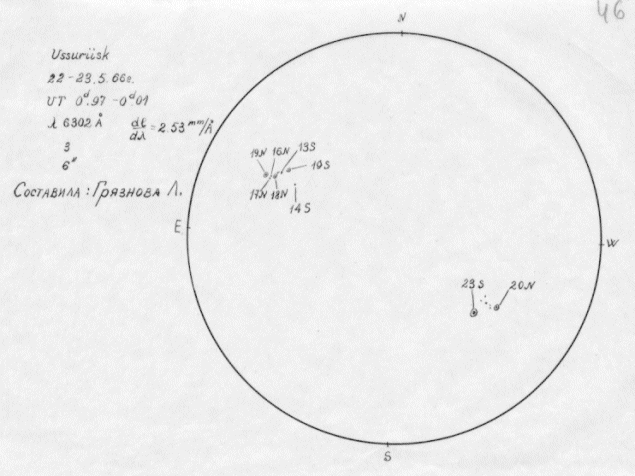 46
N
Ussuriisk
22-23.5.66г.
UT 0ᵈ.97 - 0ᵈ01
λ 6302 Å dl/dλ = 2.53 mm/Å
3
6"
Составила: Грязнова Л.
19N 16N 13S
10S
17N 18N
14S
E
W
23S 20N
S